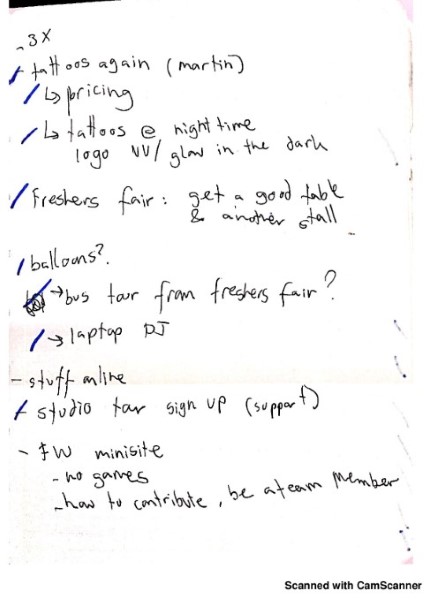 - 3X
- tattoos again (martin)
↳ pricing
↳ tattoos @ night time
logo UV/ glow in the dark
Freshers fair: get a good table
& another stall
balloons?
→ bus tour from freshers fair?
→ laptop DJ
- stuff online
- studio tour sign up (support)
- FW minisite
- no games
- how to contribute, be a team member
Scanned with CamScanner